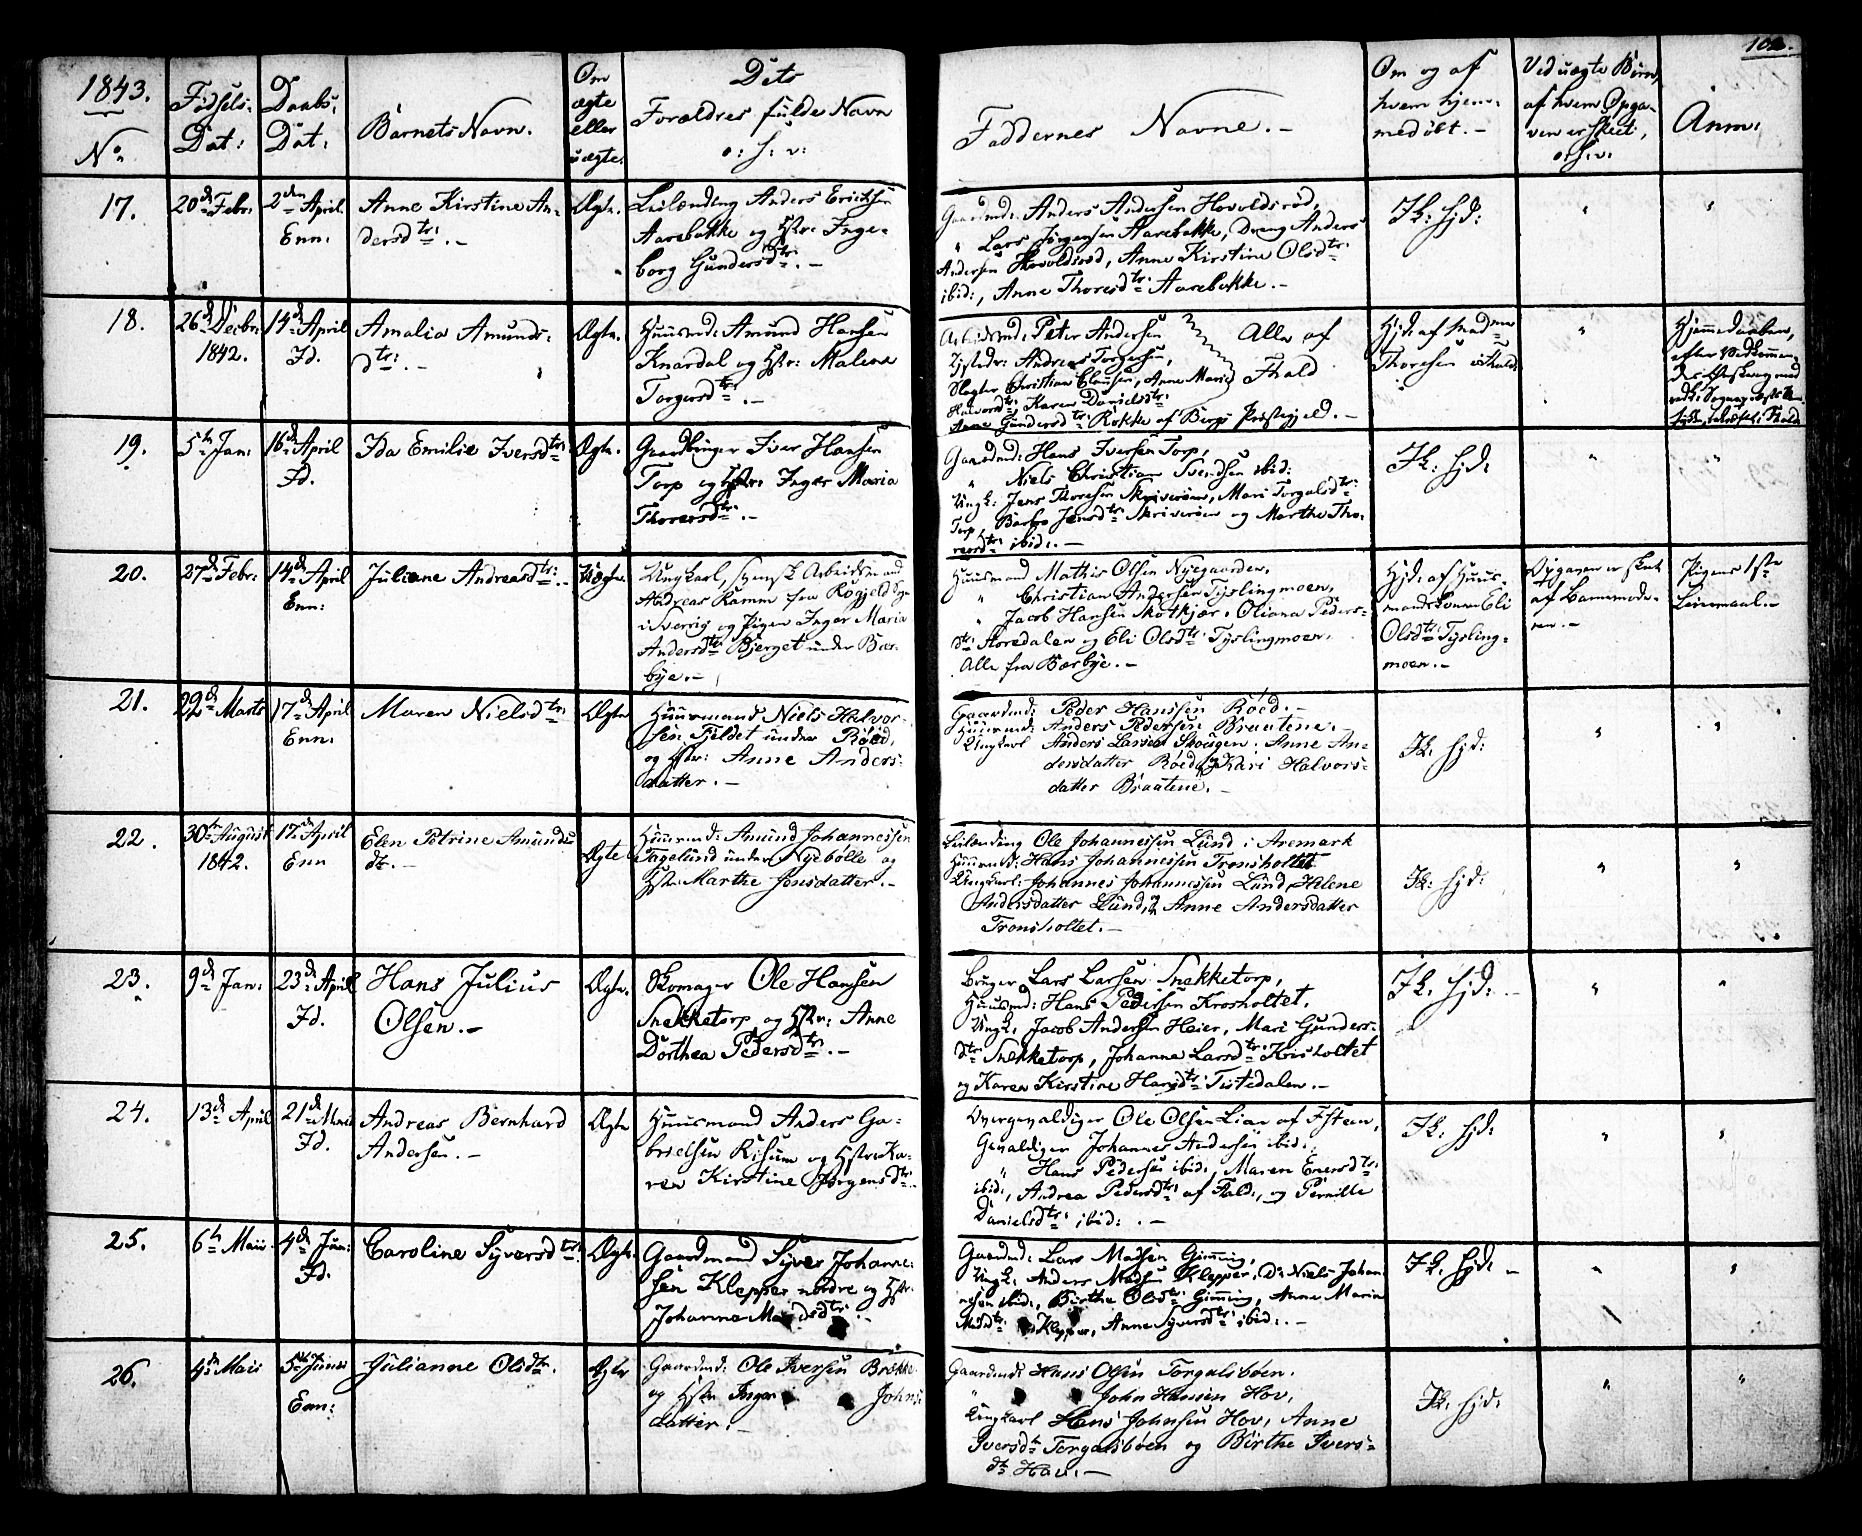 102.
1843.
No
Fødsels
Dat:
Daabs
Dat:
Barnets Navn.
Om
ægte
eller
uægte.
Dets
Forældres fulde Navn
o: s: v:
Faddernes Navne. –
Om og af
hvem hjem-
medøbt. –
Ved uægte Børn,
af hvem Opga-
ven er skeet,
o: s: v:
Anm:
17.
20de Febr:
2den April
Enn:
Anne Kirstine An-
dersdtr: –
Ægte.
Leilænding Anders Erichsen
Aarebakke og Hstr: Inge-
borg Gundersdtr: –
Gaardmd: Anders Andersen Hovoldsrød,
" Lars Jørgensen Aarebakke, Dreng Anders
Andersen Hovoldsrød, Anne Kirstine Olsdtr:
ibid:, Anne Thoresdtr: Aarebakke. –
Ik: hjd:
"
"
18.
26de Decbr:
1842.
14de April
Fd.
Amalia Amunds-
dtr: –
Ægte.
Huusmd: Amund Hansen
Knardal og Hstr: Malena
Torgersdtr: –
Arbeidsmd: Peter Andersen
Andreas Torgersen,
Slagter Christian Clausen, Anne Marie
Halvordsdtr: Karen Danielsdtr:
Anne Gundersdtr: Rokke af Bergs Præstegjeld. –
Alle af
Fhald
Hjd: af Madme
Thoresen i Fhald
"
Hjemmedaaben,
efter Vedkommen-
19.
5te Jan:
16de April
Fd.
Ida Emilie Iversdtr:
Ægte.
Gaardbruger Iver Hansen
Torp og Hstr: Inger Maria
Thoresdtr: –
Gaardmd: Hans Iversen Torp,
" Niels Christian Svendsen ibid:
Ungk: Jens Thoresen Skriverøen, Mari Torgalsdtr:
Torp, Barbro Jensdtr: Skriverøen og Marthe Tho-
resdtr: ibid: –
Ik: hjd:
"
"
20.
27de Febr:
14de April
Enn:
Juliane Andreasdtr: –
Uægte.
Ungkarl, svensk Arbeidsmand
Andreas Ramm fra
i Sverrig og Pigen Inger Maria
Andersdtr: Bjerget under Bær-
bye. –
Huusmand Mathis Olsen Nyegaarden,
" Christian Andersen Tyslingmoen,
" Jacob Hansen Skotkjær, Oliana Peders-
dtr: Aaredalen og Eli Olsdtr: Tyslingmoen.
Alle fra Bærbye. –
Hjd: af Huus-
mandskonen Eli
Olsdtr: Tysling-
moen. –
Opgaven er skeet
af Barnemode-
ren. –
Pigens 1ste
Leiermaal. –
21.
22de Marts
17de April
Enn:
Maren Nielsdtr:
Ægte
Huusmand Niels Halvor-
sen Fjeldet under Røed,
og Hstr: Anne Anders-
datter. –
Gaardmd: Peder Hanssen Røed. –
Huusmd: Anders Pedersen Braatene.
Ungkarl Anders Larsen Skougen. Anne An-
dersdatter Røed, og Kari Halvors-
datter Braatene. –
Ik: hjd:
"
"
22.
30te August
1842.
17de April
Enn
Elen Petrine Amunds
dt: –
Ægte
Huusmd: Amund Johannessen
Fagelund under Nyebølle og
Hstr: Marthe Jensdatter. –
Leilænding Ole Johannessen Lund i Aremark
Huusmd: Hans Johannessen Tronsholtet
Ungkarl: Johannes Johannessen Lund, Helene
Andersdatter Lund, og Anne Andersdatter
Tronsholtet. –
Ik: hjd:
"
"
23.
9de Jan:
23de April
Fd.
Hans Julius
Olsen. –
Ægte.
Skomager Ole Hansen
Snekketorp og Hstr: Anne
Dorthea Pedersdtr: –
Borger Lars Larsen Snekketorp,
Huusmd: Hans Pedersen Krosholtet.
Ungk: Jacob Andersen Heier, Mari Gunders-
dtr: Snekketorp, Johanne Larsdtr: Krisholtet
og Karen Kirstine Hansdtr: Tistedalen. –
Ik: hjd: –
"
"
24.
13de April
21de Mai
Fd.
Andreas Bernhard
Andersen. –
Ægte
Huusmand Anders Ga-
brielsen Risum og Hstr: Ka-
ren Kirstine Jørgensdtr:
Overgevaldiger Ole Olsen Lian af Fsteen,
Gevaldiger Johannes Andersen ibid:
" Hans Pedersen ibid:, Maren Enersdtr:
ibid:, Andrea Pedersdtr: af Fald:, og Pernille
Danielsdtr: ibid: –
Ik: hjd:
"
"
25.
6te Mai
4de Jun:
Fd.
Caroline Syversdtr:
Ægte.
Gaardmand Syver Johanne-
sen Klepper nordre og Hstr:
Johanne Madsdtr: –
Gaardmd: Lars Madsen Gimming,
Ungk: Anders Madsen Klepper, Do Niels Johan-
nesen ibid:, Birthe Olsdtr: Gimming, Anne Maria
Madsdtr: Klepper, Anne Syversdtr: ibid: –
Ik: hjd: –
"
"
26.
4de Mai
5te Juni
Enn:
Julianne Olsdtr.
Ægte
Gaardmd: Ole Iversen Brække
og Hstr Inger Johns-
datter. –
Gaardmd: Hans Olsen Torgalsbøen.
" John Hansen Hov,
Ungkarl Hans Johnsen Hov, Anne
Iversdtr Torgalsbøen og Birthe Ivers-
dtr Hov. –
Ik: hjd:
"
"